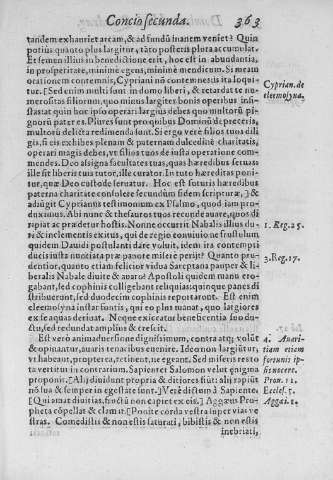 Concio secunda. 363
tandem exhauriet arcam, & ad fundū inanem veniet? Quin
potius quanto plus largitur, tāto posteris plura accumulat.
Et semen illius in benedictione erit, hoc est in abundantia,
in prosperitate, minimè egens, minimè mendicum. Si meam
orationem contemnis, Cyprianū nō contemnes ita loqui-
tur. [Sed enim multi sunt in domo liberi, & retardat te nu-
merositas filiorum, quo minus largiter bonis operibus insi-
stas: at quin hoc ipso operari largius debes quo multorū pi-
gnorū pater es. Plures sunt pro quibus Dominū depreceris,
multorū delicta redimenda sunt. Si ergo verè filios tuos dili-
gis, si eis exhibes plenam & paternam dulcedinē charitatis,
operari magis debes, vt filios tuos de iusta operatione com-
mendes. Deo assigna facultates tuas, quas hæredibus seruas:
ille sit liberis tuis tutor, ille curator. In tuto hæreditas poni-
tur, quæ Deo custode seruatur. Hoc est futuris hæredibus
paterna charitate consolere secundùm fidem scripturæ, ] &
adiūgit Cyprianus testimonium ex Psalmo, quod iam pro-
duximus. Abi nunc & thesauros tuos reconde auare, quos di-
ripiat ac prædetur hostis. Nonne occurrit Nabalis illius du-
ri & inclementis exitus, qui de regio conuiuio ne frustulum
quidem Dauidi postulanti dare voluit, idem ira contempti
ducis iusta nuoxiata præ pauore miserè perijt? Quanto pru-
dentior, quanto etiam felicior vidua Sareptana pauper & li-
beralis Nabale diuite & auaro? Apostoli quidem manu ero-
gabant, sed cophinis colligebant reliquias: quinque panes di
stribuerunt, sed duodecim cophinis reportaront. Est enim
eleemosyna instar fontis, qui eo plus manat, quo largiores
ex se aquas deriuat. Neque exiccatur beneficentiæ fons du-
ctu, sed redundat amplius & crescit.
Est verò animaduersione dignissimum, contra atq; volūt
& opinantur, auaris tenacibus euenire. Ideo non largiūtur,
vt habeant, propterea, retinent, ne egeant. Sed miseris res to
ta vertitur in contrarium. Sapienter Salomon velut ænigma
proponit. [Alij diuidunt propria & ditiores fiūt: alij rapiūt
nō sua & semper in egestate sunt.] Verè dictum à Sapiente.
[Qui amat diuitias, fructū non capiet ex eis.] Aggæus Pro-
pheta cōpellat & clamat. [Ponite corda vestra super vias ve
stras. Comedistis & non estis saturati, bibistis & non estis
inebriati,
Cyprian. de
eleemosyna.
1. Reg. 25.
3. Reg. 17.
4. Auari-
tiam etiam
fortunis ip-
sis nocere.
Prou. 11.
Eccles. 5.
Aggæi. 1.